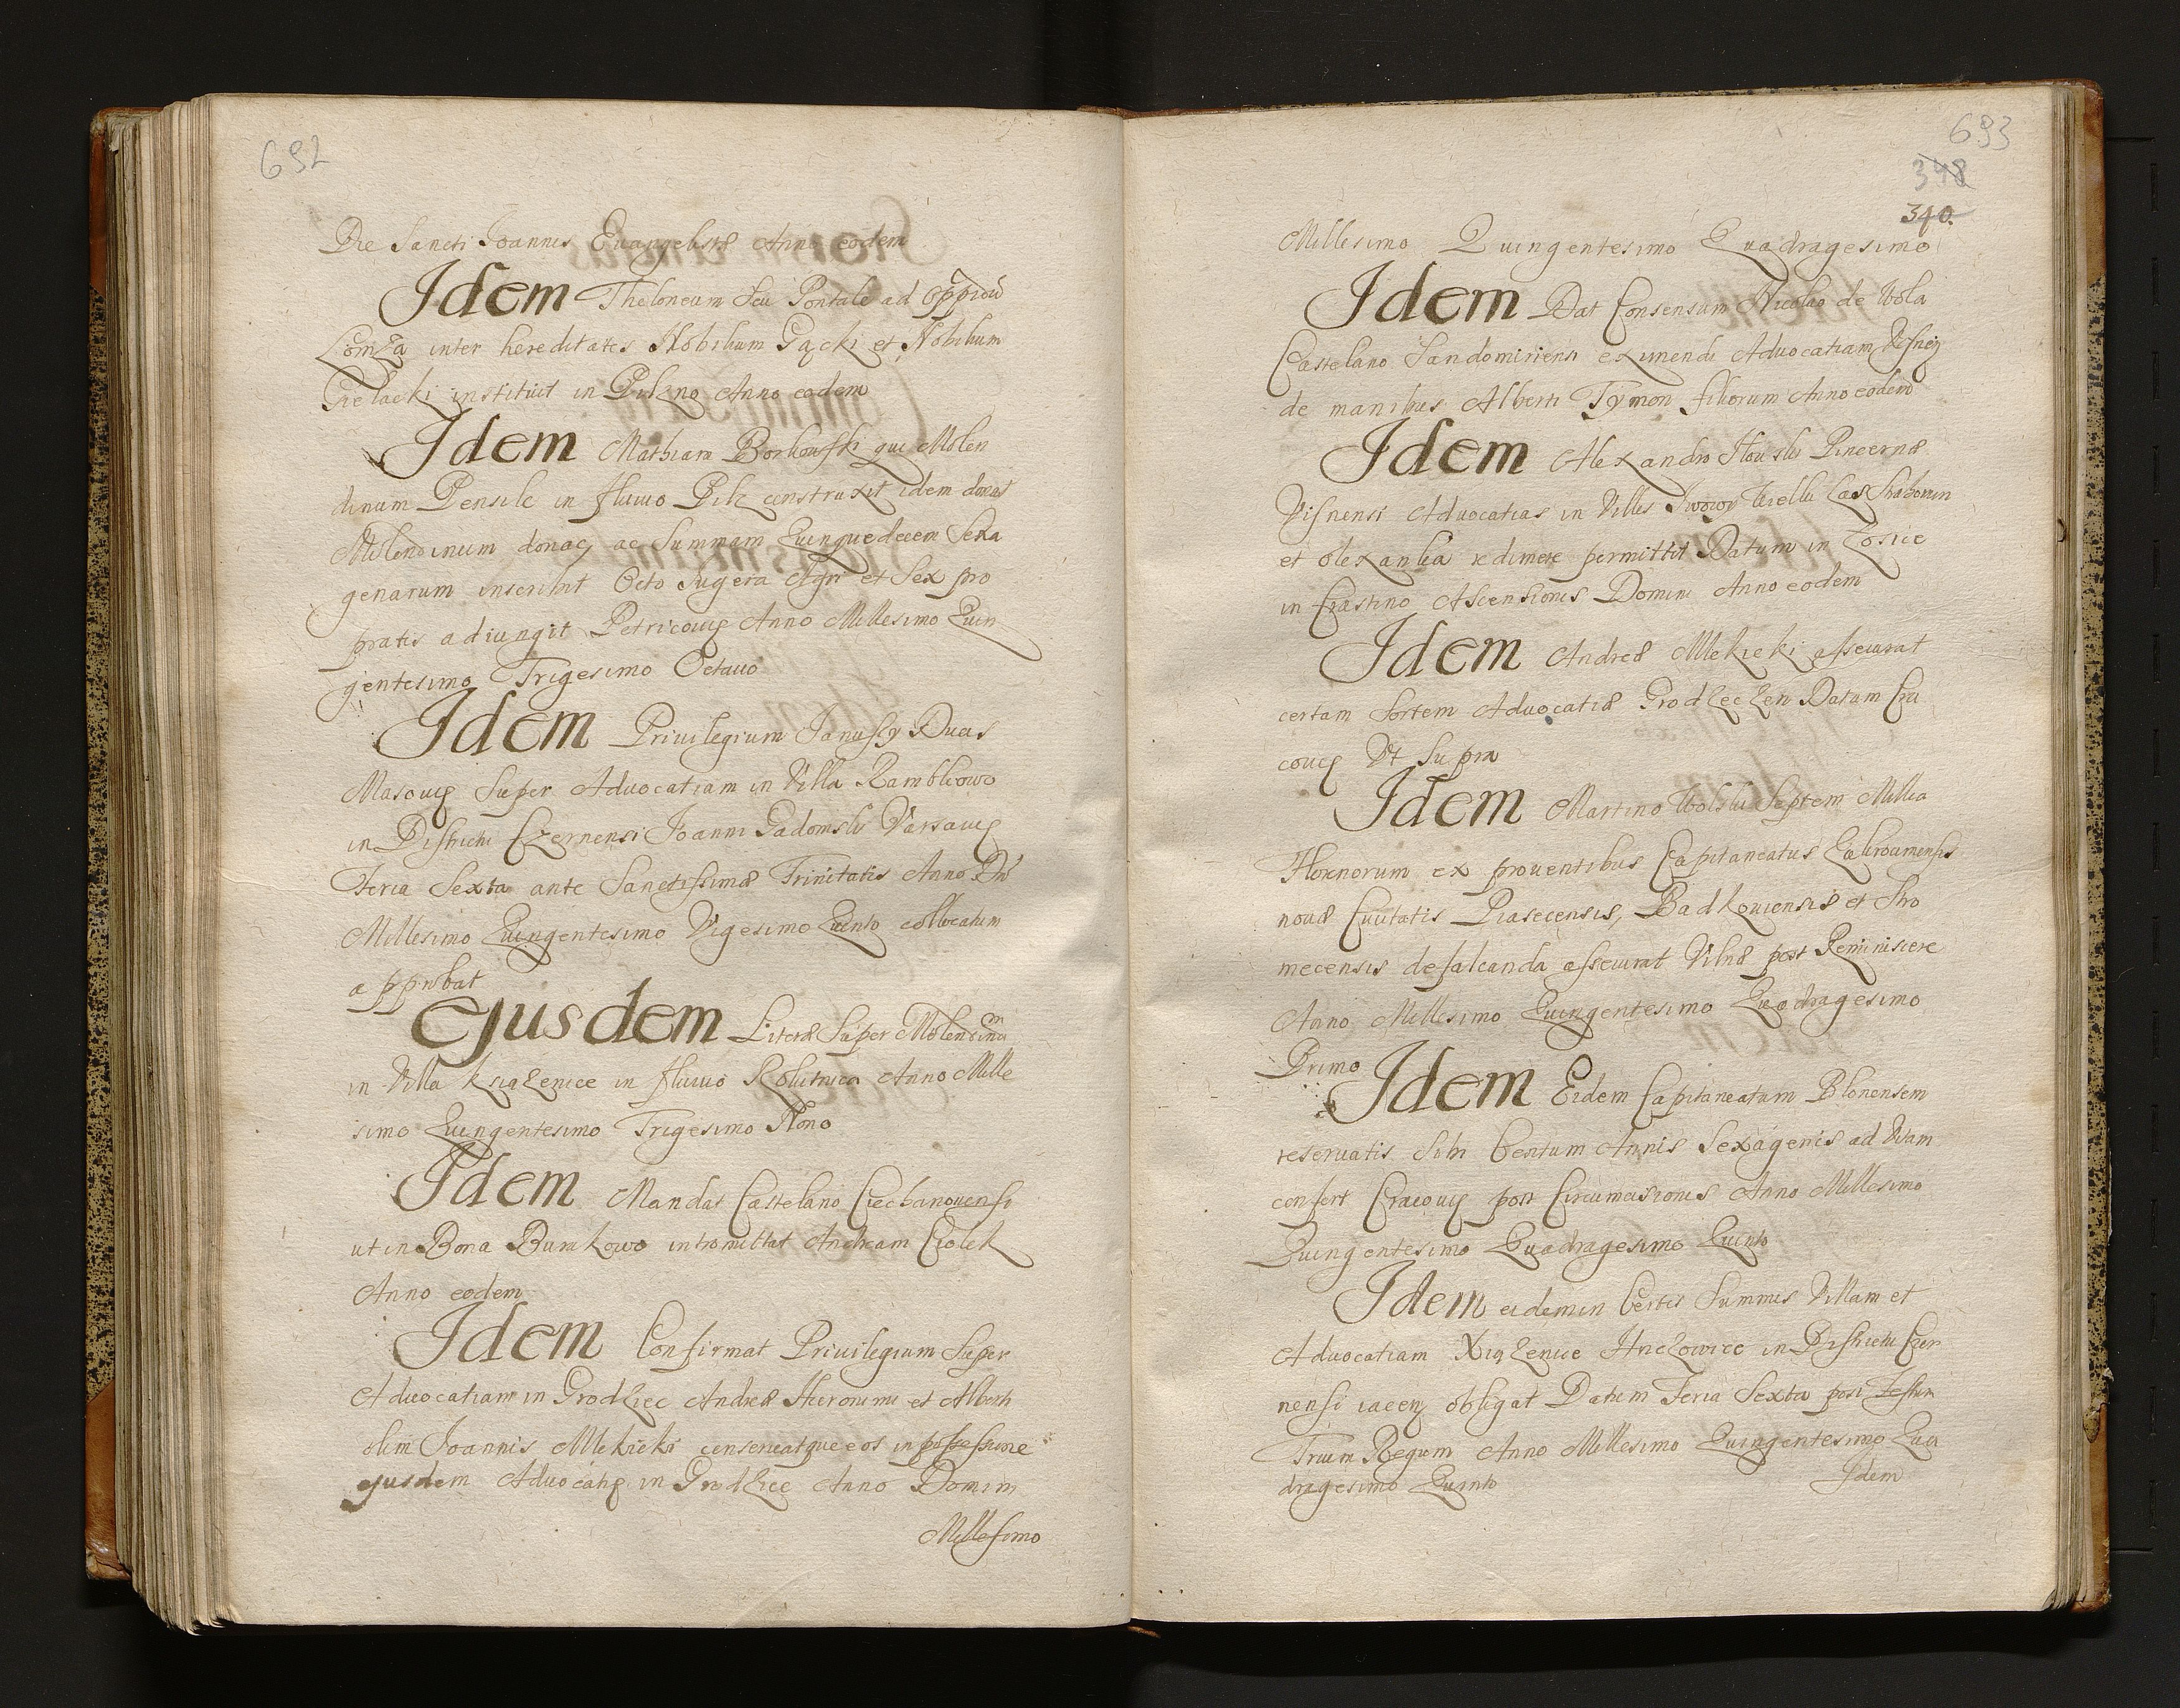 692
Die Sancti Joannis Euangelistæ Anno eodem
Idem Theloneum Seu Pontale ad Oppidũ
Łomza inter hereditates Nobilium Gącki et Nobilium
Gielacki instituit in Pilzno Anno eodem
Idem Mathiam Borkowski qui Molen
dinum Pensile in fluuio Pilz construxit idem
Molendinum donat, ac Summam Quinquedecem Sexa
genarum inscribit Octo Jugera Agri et Sex pro
pratis adiungit Petricouiæ Anno Millesimo Quin
gentesimo Trigesimo Octauo
Idem Priuilegium Janusły Ducis
Masouiæ Super Aduocatiam in Villa Ramblowo
in Districtu Czernensi Joanni Gadomski Varsauiæ
Feria Sexta ante Sanctissimæ Trinitatis Anno Dñi
Millesimo Quingentesimo Vigesimo Quinto collocatum
approbat
Ejusdem Literæ Super Molendinũ
in Villa Ksiązenice in fluuio Rolutnica Anno Mille
simo Quingentesimo Trigesimo Nono
Idem Mandat Castelano Ciechanouensi
ut in Bona Burakowo intromittat Andream Ciolek
Anno eodem
Idem Confirmat Priuilegium Super
Aduocatiam in Grodziec Andreæ Hieronimi et Alberti
olim Joannis Mekicki conseruatque eos in possessione
ejusdem Aduocatiæ in Grodziec Anno Domini
Millesimo
693
348
340.
Millesimo Quingentesimo Quadragesimo
Idem Dat Consensum Nicolao de Wola
Castelano Sandomiriensi eximendi Aduocatiam
de manibus Alberti Tymon filiorum Anno eodem
Idem Alexandro Pincernæ
Visnensi Aduocatias in Villis Laskaborum
et redimere permittit Datum in Łosice
in Crastino Ascensionis Domini Anno eodem
Idem Andreæ Mekicki asseurat
certam Sortem Aduocatiæ Grodzeczen Datum Cra
couiæ Vt Supra
Idem Martino Wolski Septem Millia
Florenorum ex prouentibus Capitaneatus Zakrocimensis
nouæ Ciuitatis Piasecensis, Badkouiensis et Stro
mecensis defalcanda asseurat Vilnæ post Reminiscere
Anno Millesimo Quingentesimo Quadragesimo
Primo
Idem Eidem Capitaneatum Blonensem
reseruatis Sibi Centum Annis Sexagenis ad Vitam
confert Cracouiæ post Circumcisionis Anno Millesimo
Quingentesimo Quadragesimo Quinto
Idem eidem in Certis Summis Villam et
Aduocatiam Xiązenice in Districtu Czer
nensi iacen obligat Datum Feria Sexta post Festum
Trium Regum Anno Millesimo Quingentesimo Qua
dragesimo Quinto
Idem